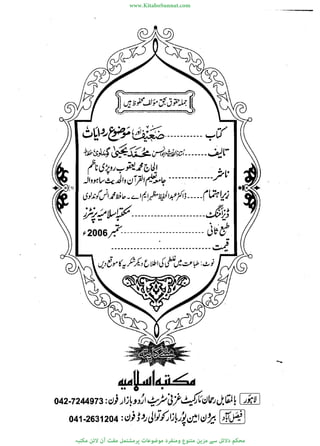 www.KitaboSunnat.com
جملہ حقوق بحق مؤلف محفوظ ہیں
کتاب ............ ضعیف اور موضوع روایات
تالیف ............ محمد یحییٰ گوندلوی
ناشر ............ الحاج محمد یعقوب
جامعہ تعلیم القرآن والحدیث ساہووالہ
زیر اہتمام ..... ڈاکٹر عبدالحفیظ ایم اے ۔ حافظ محمد انس گوندلوی
ڈیزائننگ ............ مکتبہ اسلامیہ پرنٹرز
طبع ثانی ............ ستمبر 2006ء
قیمت ............
نوٹ: طباعت میں غلطی کی اطلاع دیکر شکریہ کا موقع دیں
مکتبہ اسلامیہ
لاہور بالمقابل رحمان مارکیٹ غزنی سٹریٹ اردو بازار فون: 042-7244973
فیصل آباد بیرون امین پور بازار کوتوالی روڈ فون: 041-2631204
محکم دلائل سے مزین متنوع ومنفرد موضوعات پر مشتمل مفت آن لائن مکتبہ